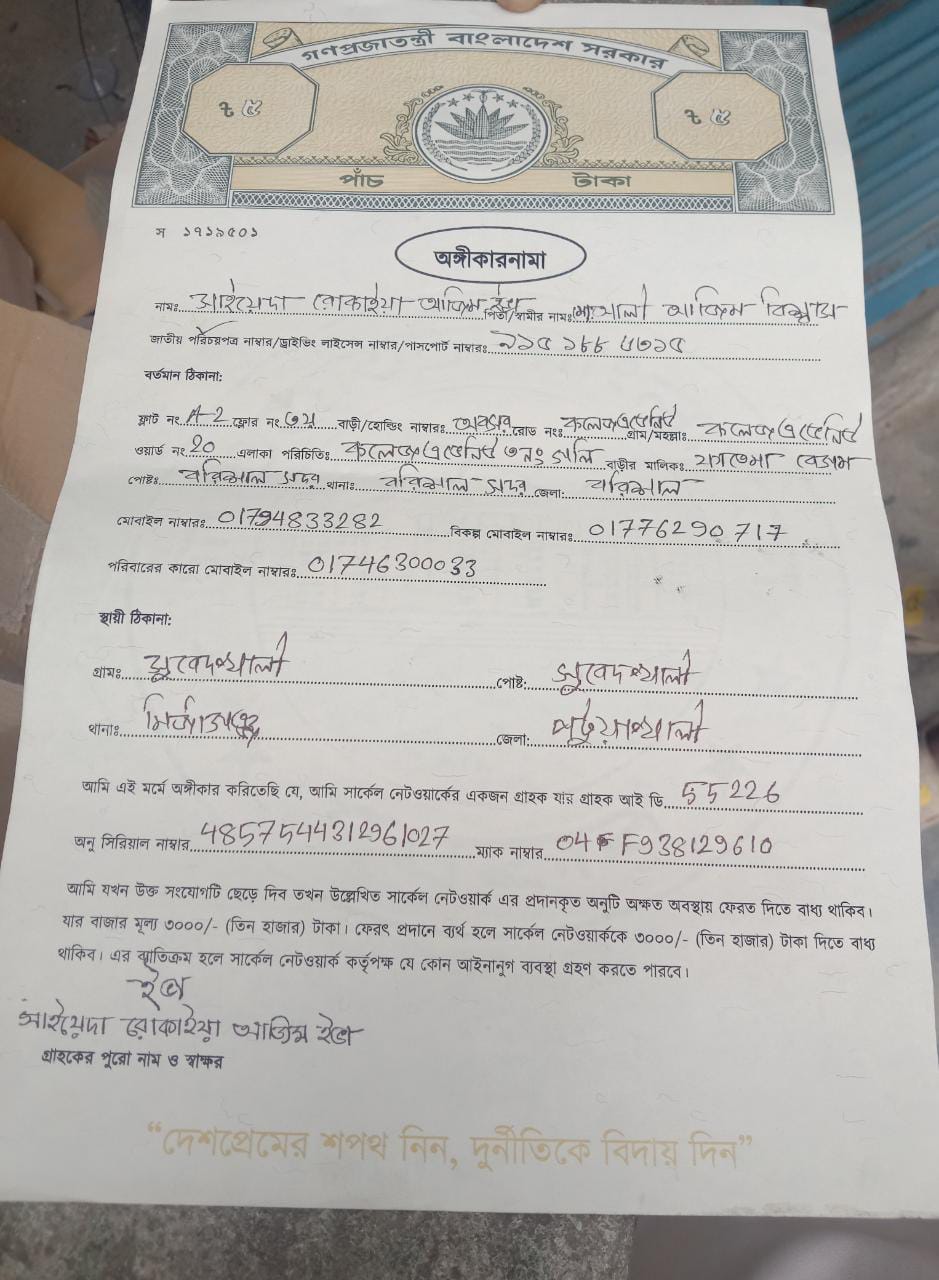 গণপ্রজাতন্ত্রী বাংলাদেশ সরকার
৳ ৫ ৳ ৫
পাঁচ টাকা
স ১৭১৯৫০১
অঙ্গীকারনামা
নামঃ সাইয়েদা রোকাইয়া আজিম ইভা পিতা/স্বামীর নামঃ আজিম
জাতীয় পরিচয়পত্র নাম্বার/ড্রাইভিং লাইসেন্স নাম্বার/পাসপোর্ট নাম্বারঃ
বর্তমান ঠিকানা:
ফ্লাট নং A-2 ফ্লোর নং ৩য় বাড়ী/হোল্ডিং নাম্বারঃ রোড নংঃ কলেজ এভেনিউ গ্রাম/মহল্লাঃ কলেজ এভেনিউ
ওয়ার্ড নং 20 এলাকা পরিচিতিঃ কলেজ এভেনিউ ৩নং গলি বাড়ীর মালিকঃ ফাতেমা বেগম
পোষ্টঃ বরিশাল সদর থানাঃ বরিশাল সদর জেলা: বরিশাল
মোবাইল নাম্বারঃ 01794833282 বিকল্প মোবাইল নাম্বারঃ 01776290717
পরিবারের কারো মোবাইল নাম্বারঃ 01746300033
স্থায়ী ঠিকানা:
গ্রামঃ সুবেদখালী পোষ্ট: সুবেদখালী
থানাঃ মির্জাগঞ্জ জেলা: পটুয়াখালী
আমি এই মর্মে অঙ্গীকার করিতেছি যে, আমি সার্কেল নেটওয়ার্কের একজন গ্রাহক যার গ্রাহক আই ডি 55226
অনু সিরিয়াল নাম্বার 4857544312961027 ম্যাক নাম্বার F938129610
আমি যখন উক্ত সংযোগটি ছেড়ে দিব তখন উল্লেখিত সার্কেল নেটওয়ার্ক এর প্রদানকৃত অনুটি অক্ষত অবস্থায় ফেরত দিতে বাধ্য থাকিব।
যার বাজার মূল্য ৩০০০/- (তিন হাজার) টাকা। ফেরৎ প্রদানে ব্যর্থ হলে সার্কেল নেটওয়ার্ককে ৩০০০/- (তিন হাজার) টাকা দিতে বাধ্য
থাকিব। এর ব্যতিক্রম হলে সার্কেল নেটওয়ার্ক কর্তৃপক্ষ যে কোন আইনানুগ ব্যবস্থা গ্রহণ করতে পারবে।
ইভা
সাইয়েদা রোকাইয়া আজিম ইভা
গ্রাহকের পুরো নাম ও স্বাক্ষর
“দেশপ্রেমের শপথ নিন, দুর্নীতিকে বিদায় দিন”